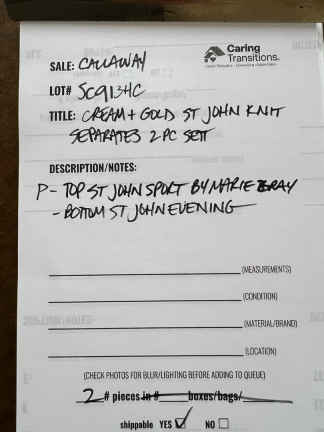 Caring
Transitions.
SALE: CALLAWAY
LOT# SC913HC
TITLE: CREAM + GOLD ST JOHN KNIT
SEPARATES 2 PC SETT
DESCRIPTION/NOTES:
P - TOP ST JOHN SPORT BY MARIE GRAY
- BOTTOM ST JOHN EVENING
(MEASUREMENTS)
(CONDITION)
(MATERIAL/BRAND)
(LOCATION)
(CHECK PHOTOS FOR BLUR/LIGHTING BEFORE ADDING TO QUEUE)
2 # pieces in # boxes/bags/
shippable YES ☑ NO ☐